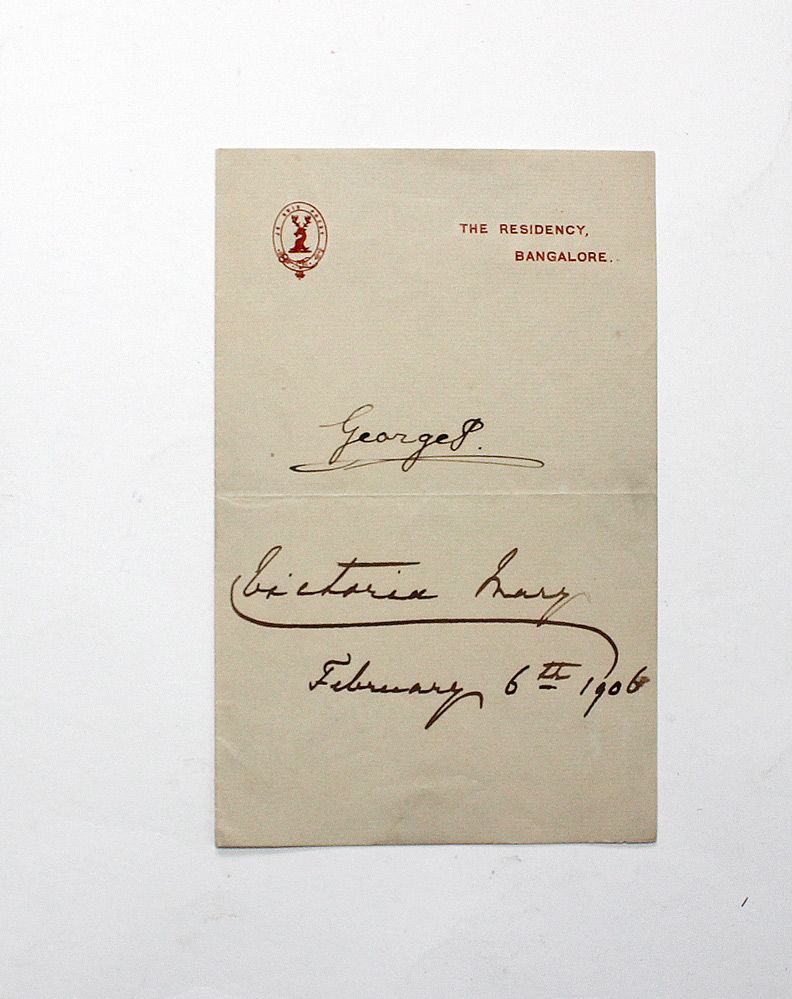 JE SUIS PREST
THE RESIDENCY,
BANGALORE.
George P.
Victoria Mary
February 6th 1906